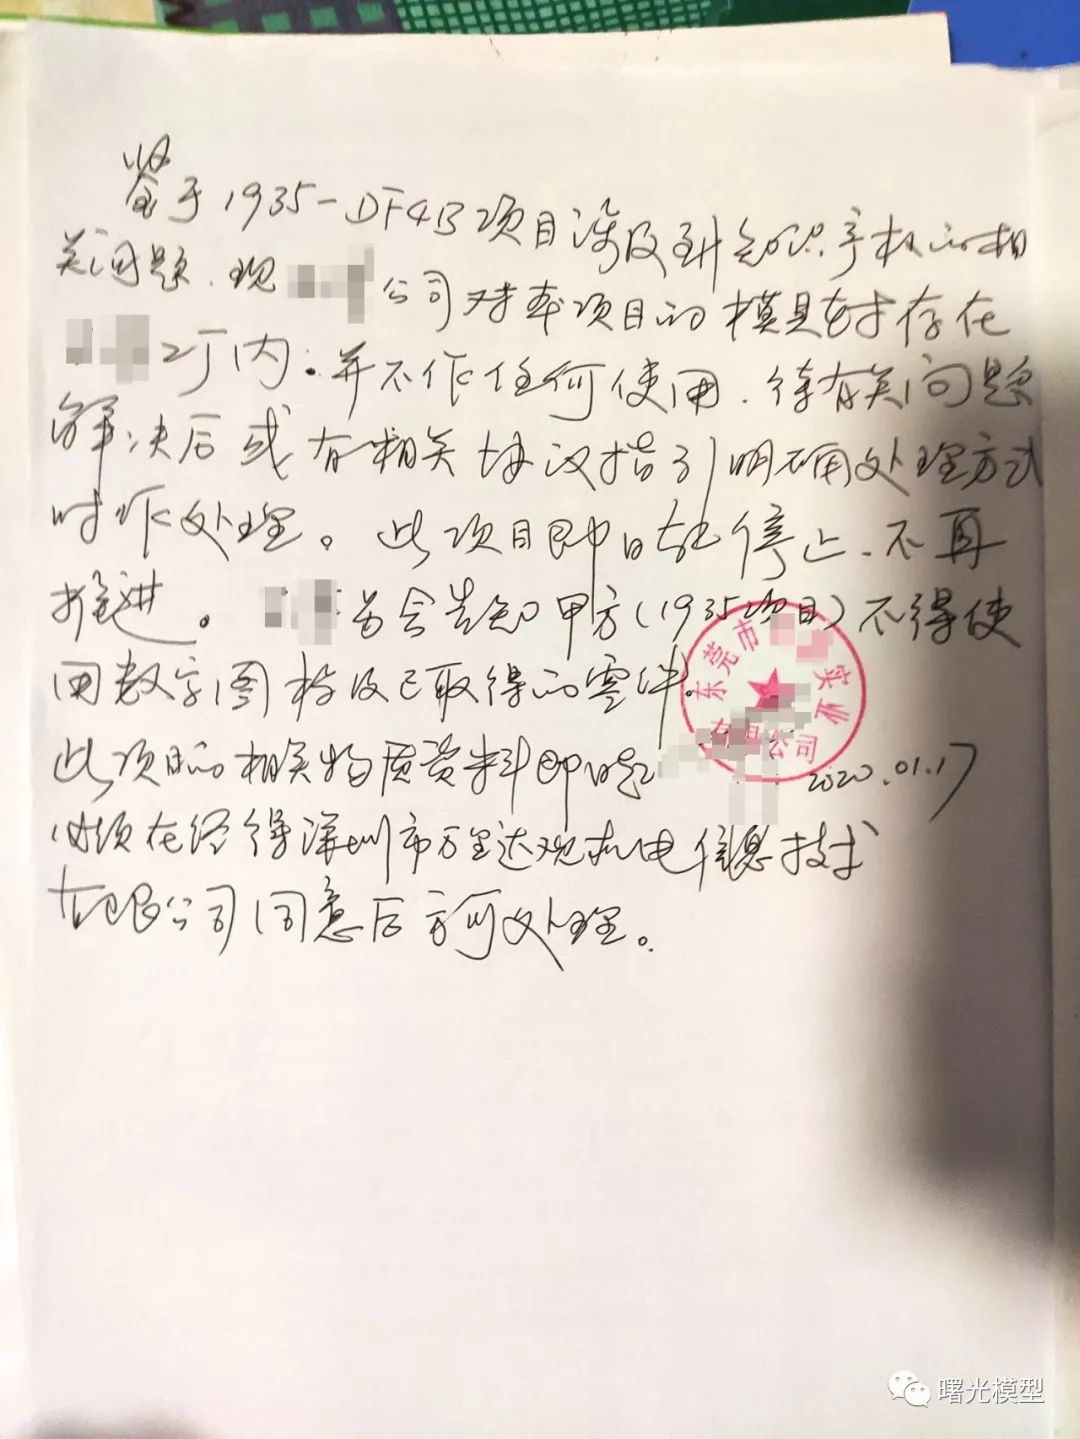 鉴于1935-DF4B项目涉及到知识产权的相
关问题.现 公司对本项目的模具暂存在
工厂内.并不作任何使用.待有关问题
解决后或有相关协议指引明确处理方式
时作处理。此项目即日起停止.不再
推进。 另会告知甲方(1935项目)不得使
用数字图档及已取得的零件.
东莞市 实业
有限公司
此项目的相关物质资料即日起
2020.01.17
必须在经得深圳市万里达观机电信息技术
有限公司同意后方可处理。
曙光模型